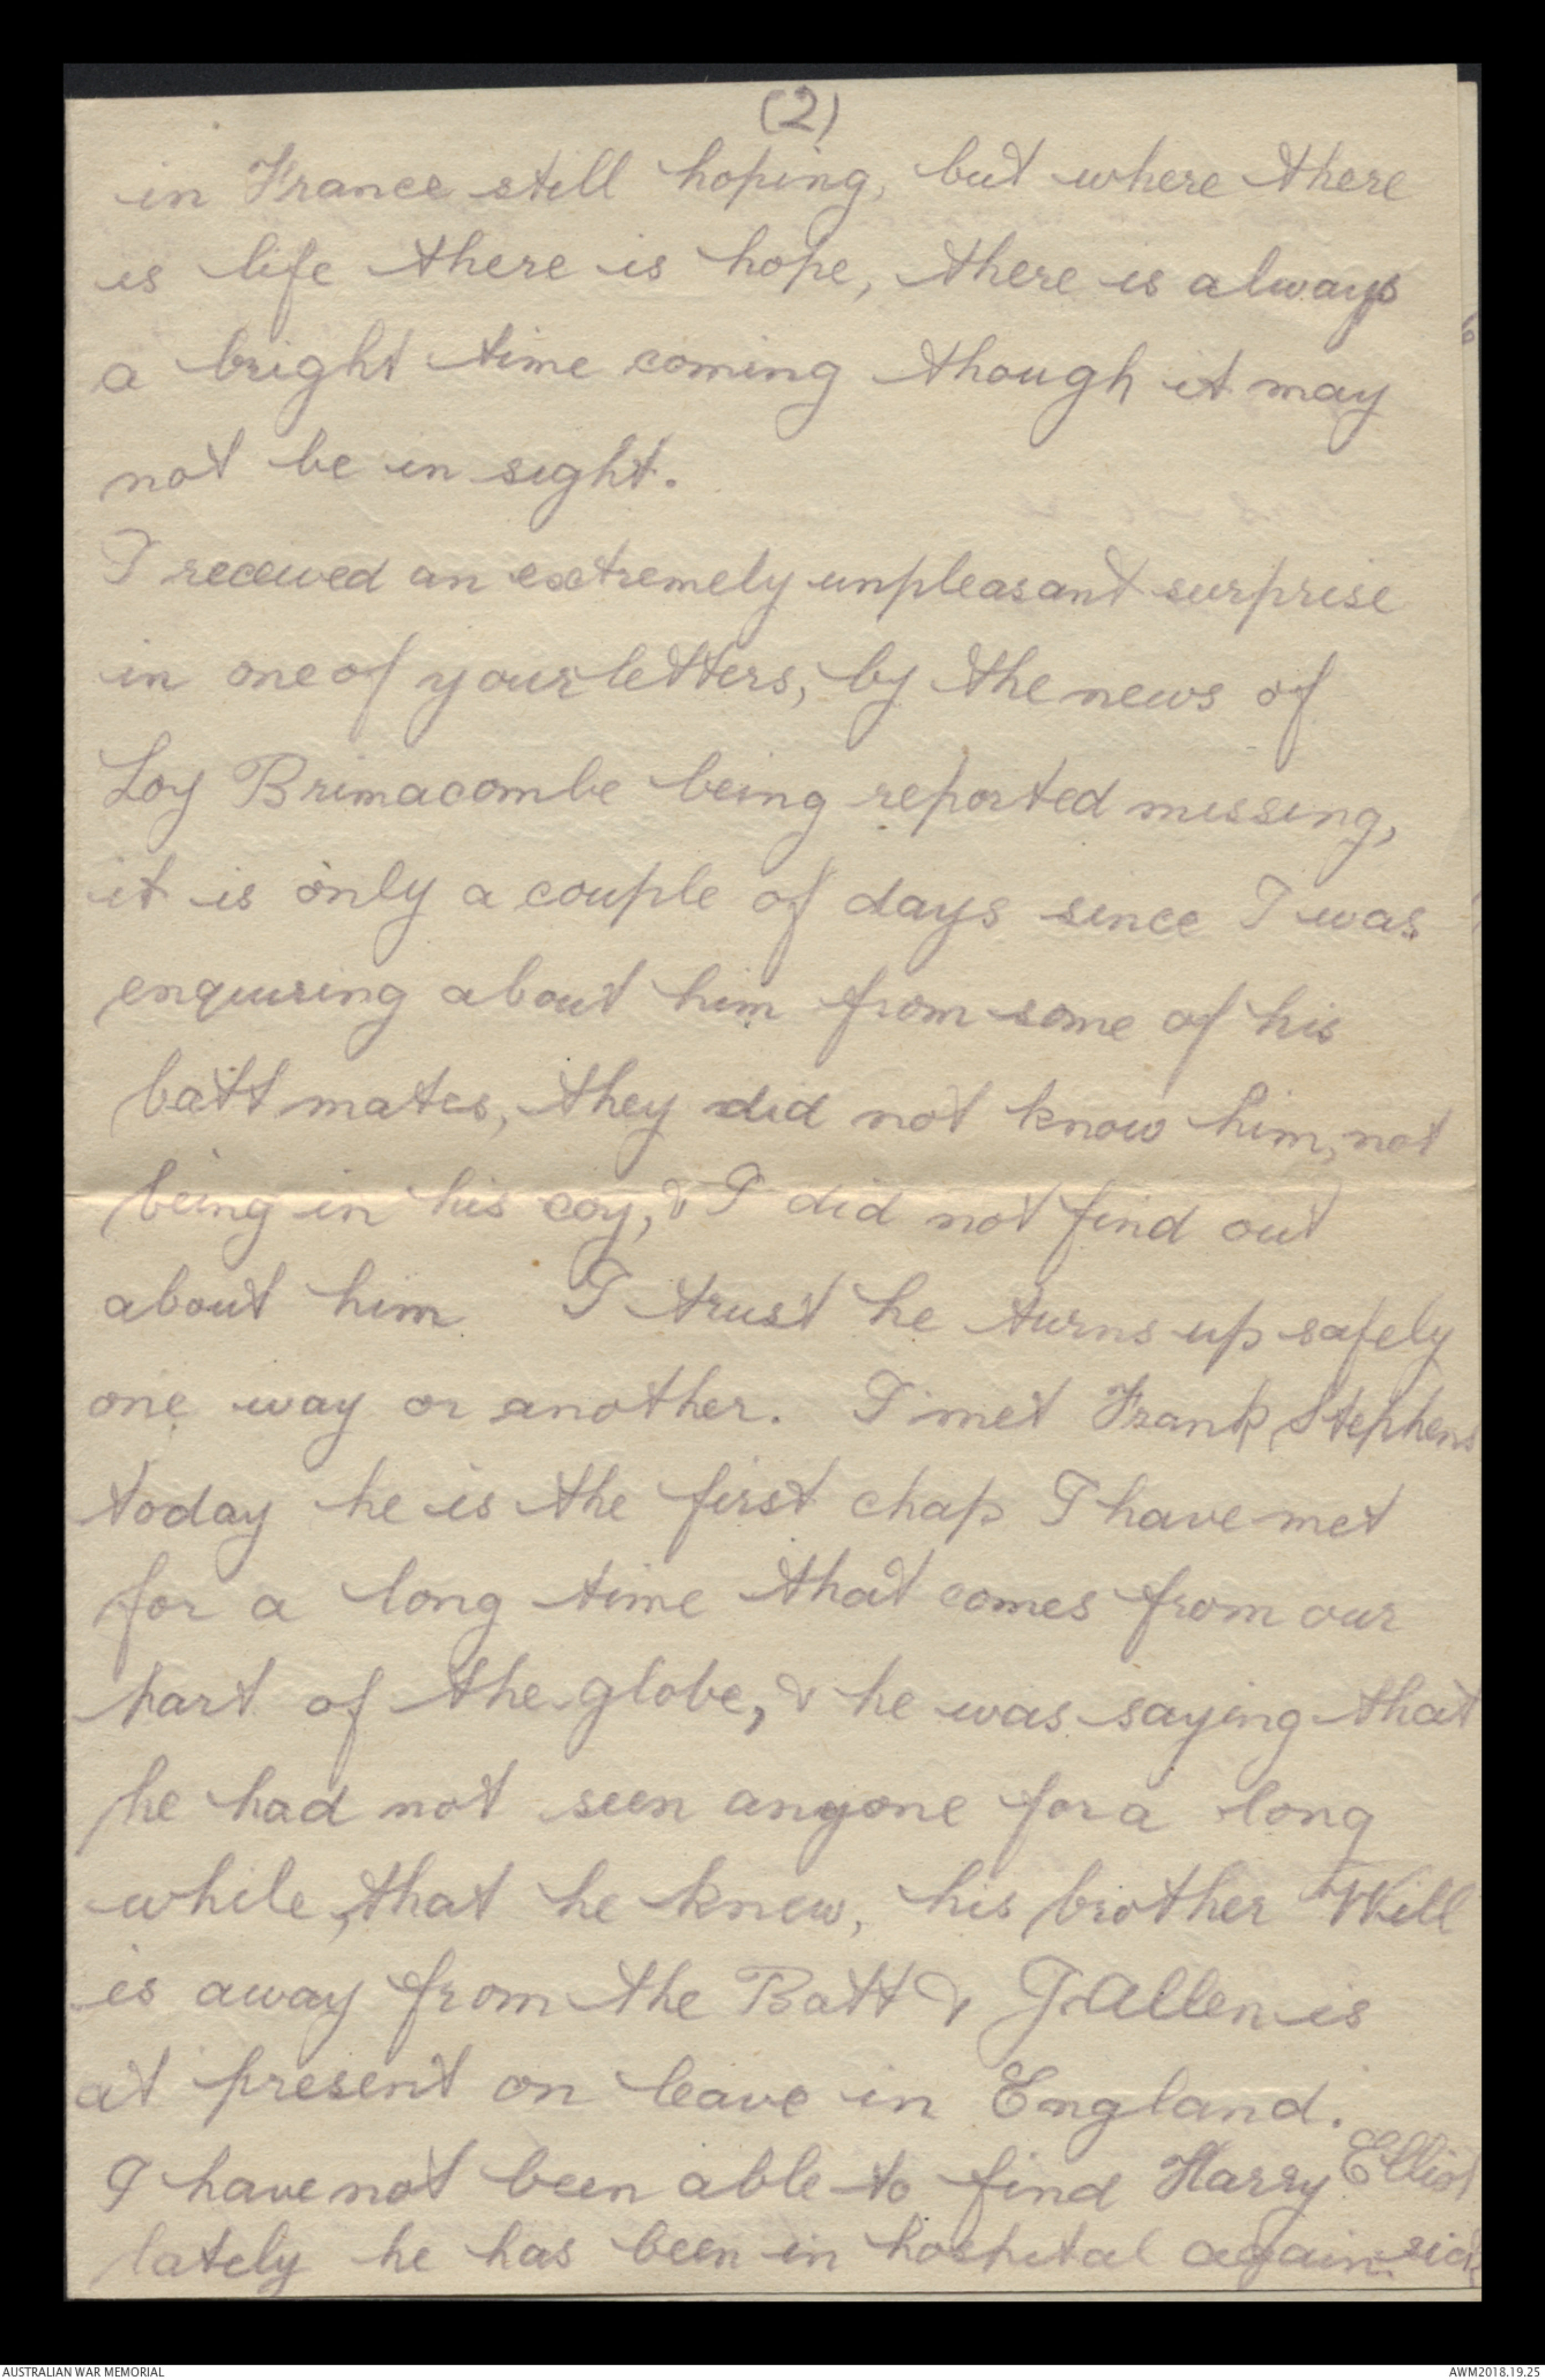 (2)
in France still hoping, but where there
is life there is hope, there is always
a bright time coming though it may
not be in sight.
I received an extremely unpleasant surprise
in one of your letters, by the news of
Loy Brimacombe being reported missing,
it is only a couple of days since I was
enquiring about him from some of his
batt mates, they did not know him, not
being in his coy, & I did not find out
about him I trust he turns up safely
one way or another. I met Frank Stephens
today he is the first chap I have met
for a long time that comes from our
part of the globe, & he was saying that
he had not seen anyone for a long
while, that he knew, his brother Will
is away from the Batt & J. Allen is
at present on leave in England.
I have not been able to find Harry Elliot
lately he has been in hospital again. sick
AUSTRALIAN WAR MEMORIAL
AWM2018.19.25